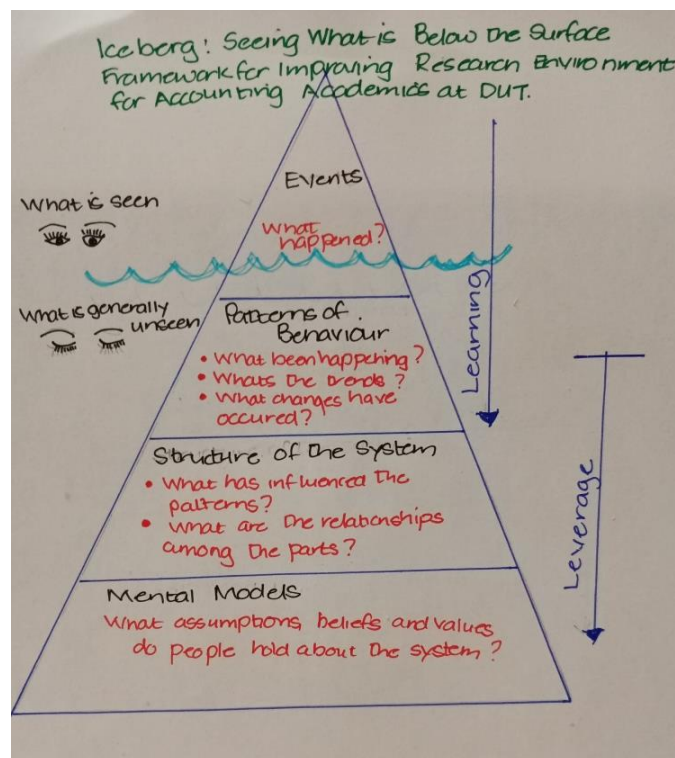 Iceberg: Seeing What is Below the Surface
Framework for Improving Research Environment
for Accounting Academics at DUT.
Events
What is seen
What
happened?
What is generally
unseen
Patterns of
Behaviour
• What been happening?
• Whats the trends?
• What changes have
occured?
Learning
Structure of the System
• What has influenced the
patterns?
• What are the relationships
among the parts?
Leverage
Mental Models
What assumptions, beliefs and values
do people hold about the system?